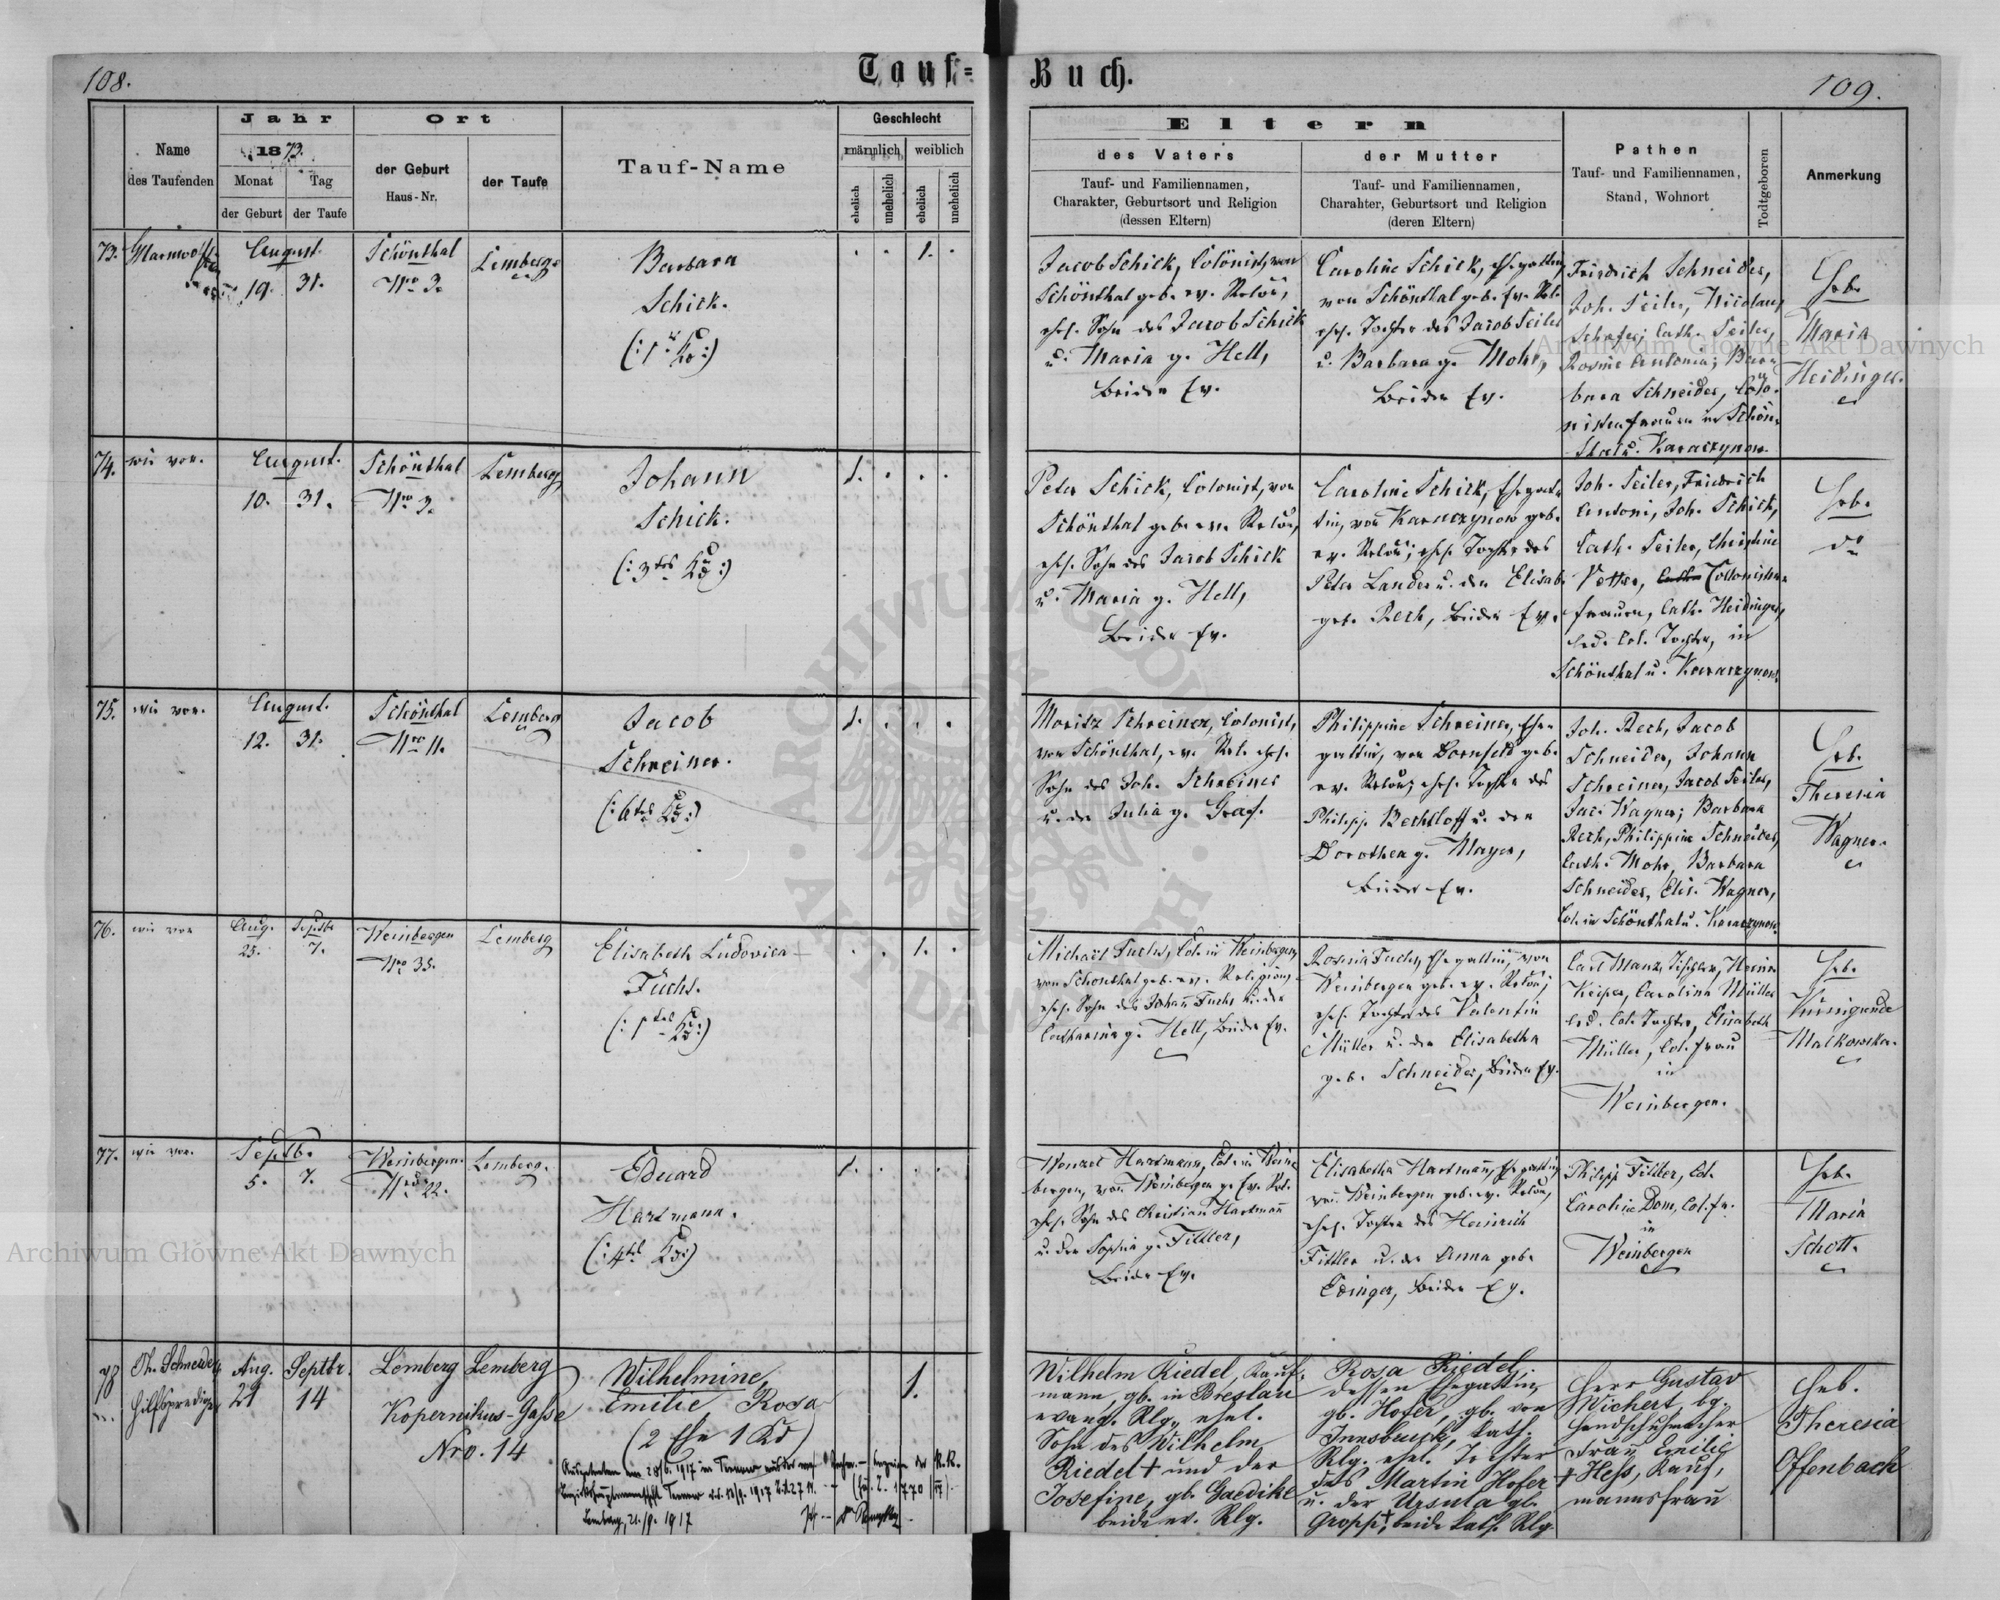 108.
Tauf=
Buch.
109.
Name
des Taufenden
Jahr
1873.
Monat
Tag
der Geburt
der Taufe
Ort
der Geburt
Haus-Nr.
der Taufe
Tauf-Name
Geschlecht
männlich
weiblich
ehelich
unehelich
ehelich
unehelich
Eltern
des Vaters
Tauf- und Familiennamen,
Charakter, Geburtsort und Religion
(dessen Eltern)
der Mutter
Tauf- und Familiennamen,
Charakter, Geburtsort und Religion
(deren Eltern)
Pathen
Tauf- und Familiennamen,
Stand, Wohnort
Todtgeboren
Anmerkung
73.
August.
19. 31.
Schönthal
Nro 3.
Lemberg
Barbara
Schick.
1.
Jacob Schick, Colonist, von
Schönthal geb. ev.
ehel. Sohn des Jacob Schick
u. Maria g. Hell,
beide Ev.
Caroline Schick, Ehegattin,
von Schönthal geb. Ev. Rel.
ehel. Tochter des Jacob Seiler
u. Barbara g. Mohr,
beide Ev.
Friedrich Schneider,
Joh. Seiler, Nicolaus
Schefer; Cath. Seiler,
Rosine Antoni; Bar-
bara Schneider, Colo-
nistenfrauen in Schön-
thal u. Karaczynow.
Heb.
Maria
Heidinger.
74.
wie vor.
August.
10. 31.
Schönthal
Nro 3.
Lemberg
Johann
Schick.
1.
Peter Schick, Colonist, von
Schönthal geb. ev.
ehel. Sohn des Jacob Schick
u. Maria g. Hell,
beide Ev.
Caroline Schick, Ehegat-
tin, von Karaczynow geb.
ev. ehel. Tochter des
Peter Lander u. der Elisab.
geb. Rech, beide Ev.
Joh. Seiler, Friedrich
Antoni, Joh. Schick,
Cath. Seiler, Christine
Vetter, Colonisten-
frauen, Cath. Heidinger,
led. Col. Tochter, in
Schönthal u. Karaczynow.
Heb.
do
75.
wie vor.
August.
12. 31.
Schönthal
Nro 11.
Lemberg
Jacob
Schreiner.
1.
Moritz Schreiner, Colonist,
von Schönthal, ev. Rel. ehel.
Sohn des Joh. Schreiner
u. der Julia g. Graf.
Philippine Schreiner, Ehe-
gattin, von Dornfeld geb.
ev. ehel. Tochter des
Philipp Bechtloff u. der
Dorothea g. Mayer,
beide Ev.
Joh. Rech, Jacob
Schneider, Johann
Schreiner, Jacob Seiler,
Jac. Wagner; Barbara
Rech, Philippine Schneider,
Cath. Mohr, Barbara
Schneider, Elis. Wagner,
Col. in Schönthal u. Karaczynow.
Heb.
Theresia
Wagner.
76.
wie vor
Aug. Septbr
25. 7.
Weinbergen
Nro 35.
Lemberg
Elisabeth Ludovica
Fuchs.
1.
Michael Fuchs, Col. in Weinbergen,
von Schönthal geb. ev. Religion,
ehel. Sohn des Johann Fuchs u. der
Catharina g. Hell, beide Ev.
Rosina Fuchs, Ehegattin, von
Weinbergen geb. ev.
ehel. Tochter des Valentin
Müller u. der Elisabetha
geb. Schneider, beide Ev.
Carl Manz, Tischler, Heinr.
Keiper, Carolina Müller
led. Col. Tochter, Elisabeth
Müller, Col. frau
in
Weinbergen.
Heb.
Kunigunde
Malkowska.
77.
wie vor.
Septb.
5. 7.
Weinbergen.
Nro 22.
Lemberg.
Eduard
Hartmann.
1.
Wenzel Hartmann, Col. in Wein-
bergen, von Weinbergen g. Ev. Rel.
ehel. Sohn des Christian Hartmann
u. der Sophia g. Fittler,
beide Ev.
Elisabetha Hartmann, Ehegattin
von Weinbergen geb. ev.
ehel. Tochter des Heinrich
Fittler u. der Anna geb.
Edinger, beide Ev.
Philipp Fittler, Col.
Caroline Dom, Col. fr.
in
Weinbergen
Heb.
Maria
Schott.
78
Th. Schneider
Hilfsprediger
Aug. Septbr.
21 14
Lemberg
Kopernikus-Gasse
Nro. 14
Lemberg
Wilhelmine,
Emilie Rosa
(2 Ehe 1 Kd)
1.
Lemberg, 21./9. 1917
Wilhelm Riedel, Kauf-
mann, gb. in Breslau
evang. Rlg., ehel.
Sohn des Wilhelm
Riedel † und der
Josefine, gb. Gaedike
beide ev. Rlg.
Rosa Riedel,
dessen Ehegattin,
gb. Hofer, gb. von
Innsbruck, kath.
Rlg. ehel. Tochter
des Martin Hofer †
u. der Ursula gb.
Gropp †, beide kath. Rlg.
Herr Gustav
Wichert, bg.
Handschuhmacher
Frau Emilie
Hess, Kauf-
mannsfrau
Heb.
Theresia
Offenbach
Archiwum Główne Akt Dawnych
Archiwum Główne Akt Dawnych